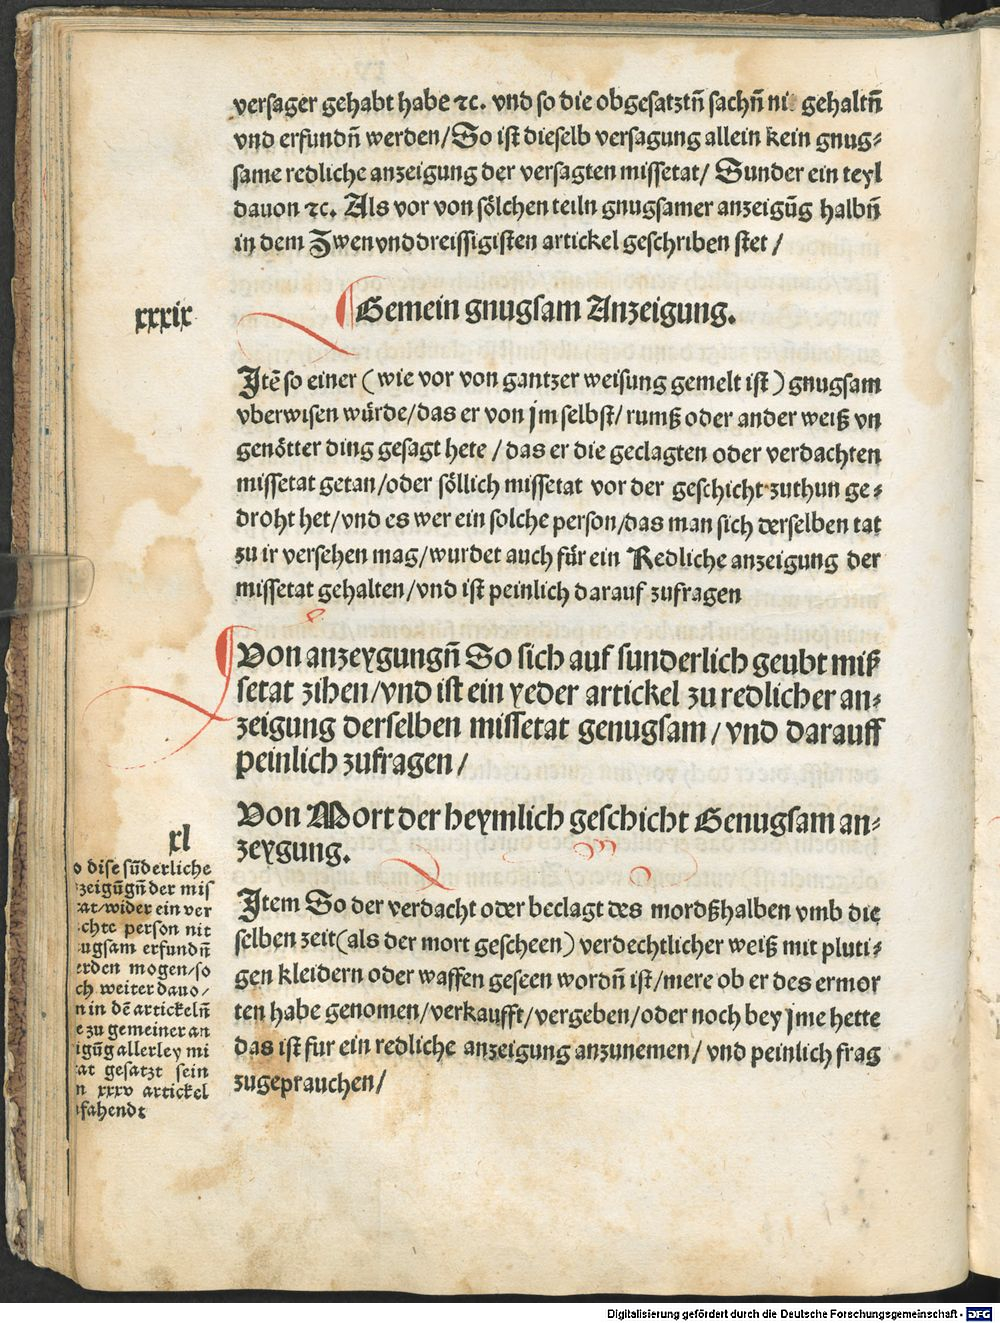 versager gehabt habe ⁊c. vnd so die obgesatztn̄ sachn̄ ni gehaltn̄
vnd erfundn̄ werden/So ist dieselb versagung allein kein gnug⸗
same redliche anzeigung der versagten missetat/ Sunder ein teyl
dauon ⁊c. Als vor von sölchen teiln gnugsamer anzeigūg halbn̄
in dem Zwen vnd dreissigisten artickel geschriben stet /
xxxix
Gemein gnugsam Anzeigung.
Jtē so einer ( wie vor von gantzer weisung gemelt ist ) gnugsam
vberwisen würde/das er von jm selbst/ rumß oder ander weiß vn
genötter ding gesagt hete / das er die geclagten oder verdachten
missetat getan/oder söllich missetat vor der geschicht zuthun ge⸗
droht het/vnd es wer ein solche person/das man sich derselben tat
zu ir versehen mag/wurdet auch für ein Redliche anzeigung der
missetat gehalten/vnd ist peinlich darauf zufragen
Von anzeygungn̄ So sich auf sunderlich geubt miß
setat zihen/vnd ist ein yeder artickel zu redlicher an⸗
zeigung derselben missetat genugsam/vnd darauff
peinlich zufragen/
Von Mort der heymlich geschicht Genugsam an⸗
zeygung.
xl
Jtem So der verdacht oder beclagt des mordßhalben vmb die
selben zeit(als der mort gescheen) verdechtlicher weiß mit pluti⸗
gen kleidern oder waffen geseen wordn̄ ist/mere ob er des ermor
ten habe genomen/verkaufft/vergeben/oder noch bey jme hette
das ist fur ein redliche anzeigung anzunemen/ vnd peinlich frag
zugeprauchen/
o dise sūderliche
zeigūgn̄ der mis
at/wider ein ver
chte person nit
ugsam erfundn̄
erden mogen/so
ch weiter dauo/
n in dē artickeln̄
e zu gemeiner an
igūg allerley mi
at gesatzt sein
n xxxv artickel
fahendt
Digitalisierung gefördert durch die Deutsche Forschungsgemeinschaft - DFG